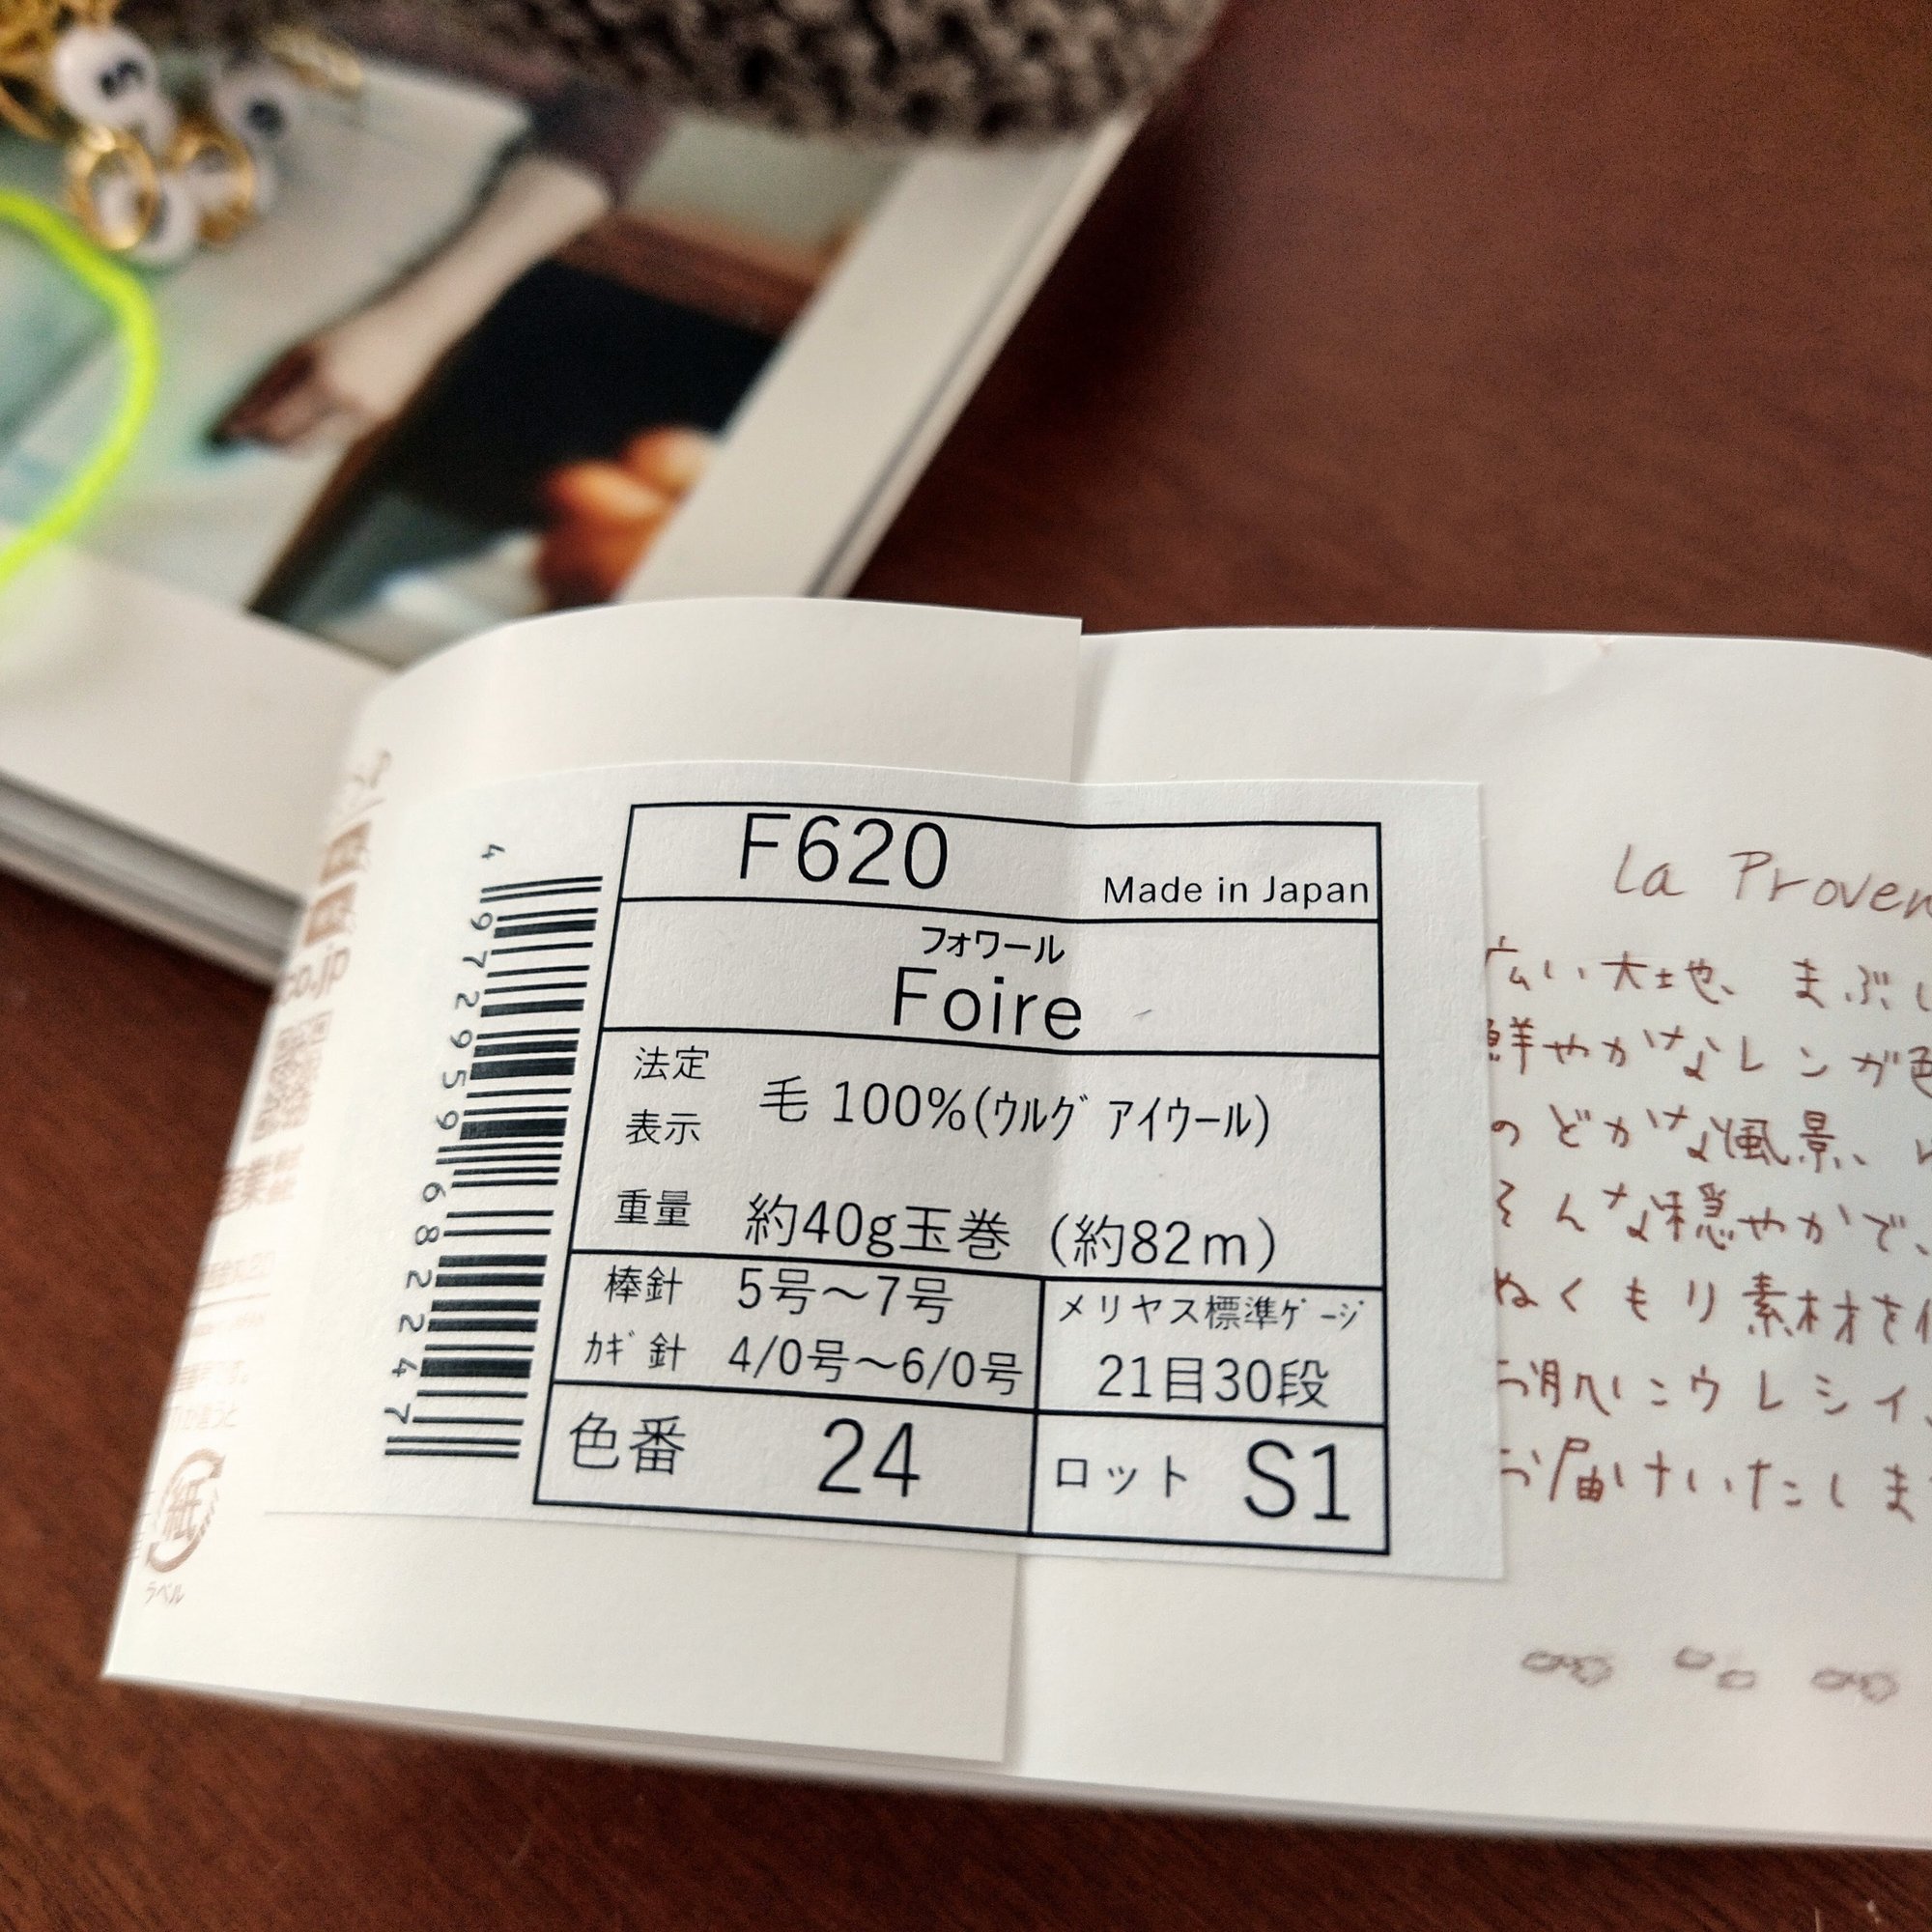 F620
Made in Japan
フォワール
Foire
法定
表示
毛 100%(ウルグアイウール)
重量 約40g玉巻 (約82m)
棒針 5号～7号
カギ針 4/0号～6/0号
メリヤス標準ゲージ
21目30段
色番 24
ロット S1
4972959682247
La Proven
広い大地、まぶし
鮮やかなレンガ色
のどかな風景、
そんな穏やかで、
ぬくもり素材を
お肌にウレシイ
お届けいたしま
co.jp
紙
ラベル